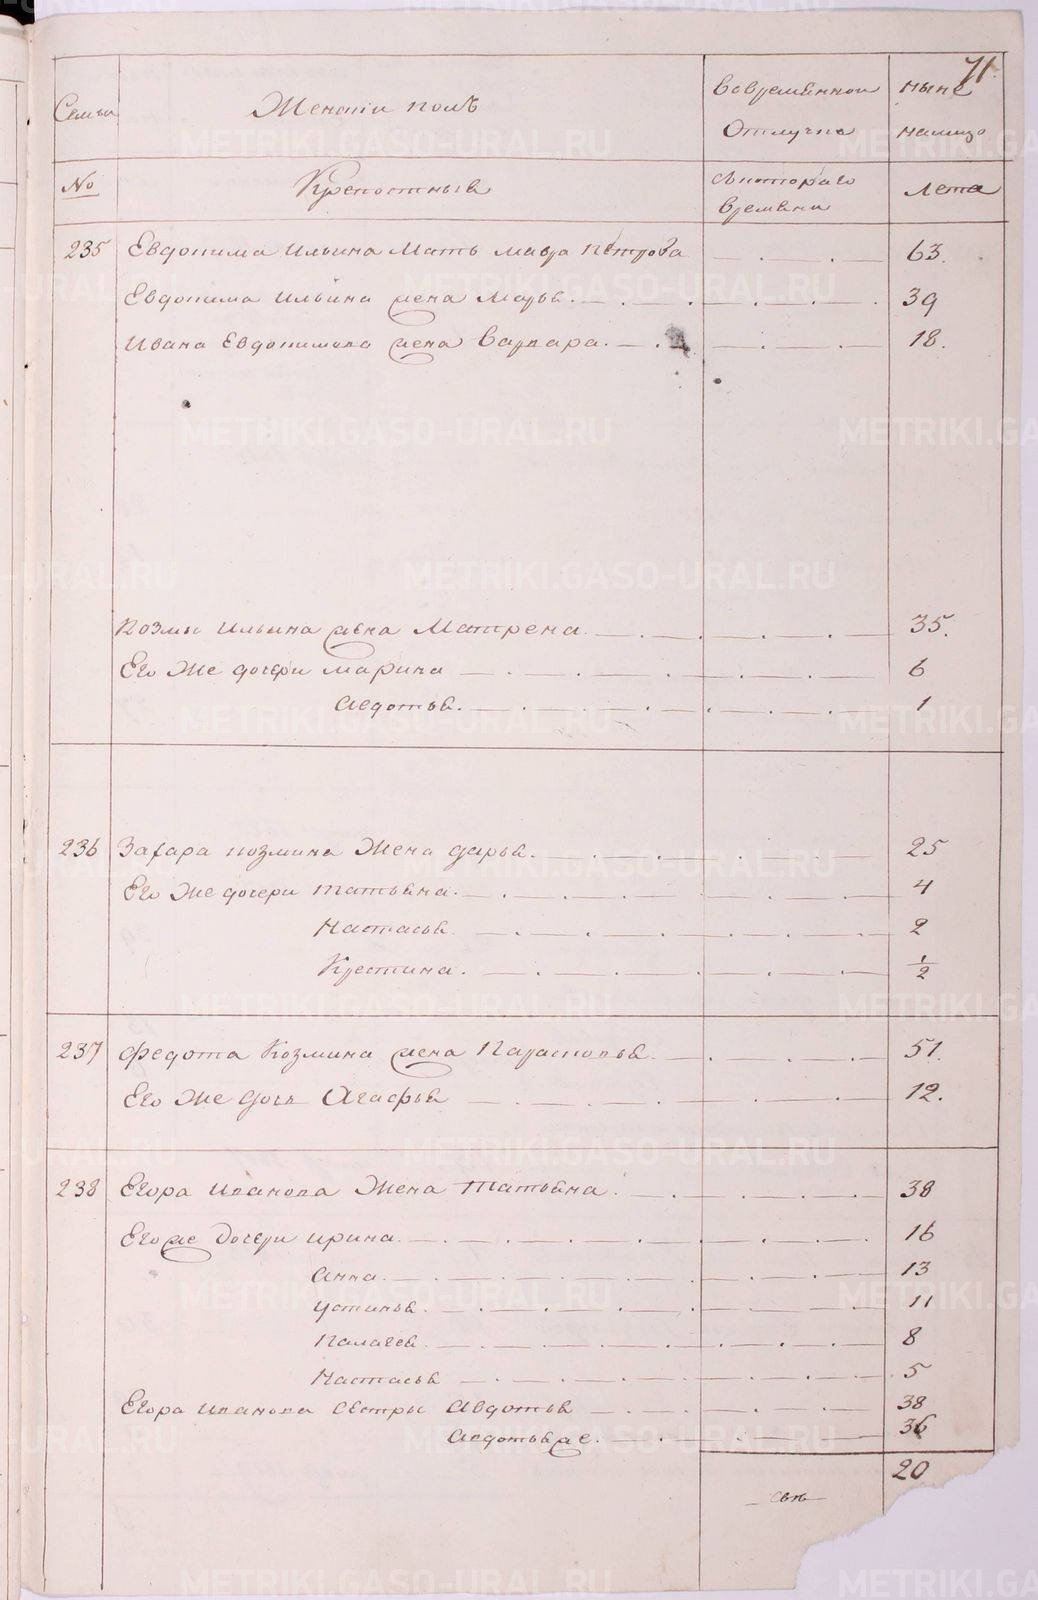 71.
Семьи Женский полъ Вовременной Отлучке ныне налицо
№ Крепостныя Скотораго времени лета
235 Евдокима Ильина Мать мавра Петрова 63.
Евдокима Ильина жена Марья. 39
Ивана Евдокимова жена Варвара. 18.
Козмы Ильина жена Матрена 35.
Его Же дочери марина 6
Авдотья. 1
236 Захара козмина Жена дарья. 25
Его Же дочери татьяна. 4
Настасья. 2
Крестина. 1/2
237 Федота Козмина жена Парасковья. 51.
Его Же дочь Агафья 12.
238 Егора Иванова Жена Татьяна. 38
Его же Дочери ирина. 16
Анна. 13
устинья. 11
Палагея. 8
Настасья 5
Егора Иванова Сестры Авдотья 38
Авдотья же. 36
20
METRIKI.GASO-URAL.RU